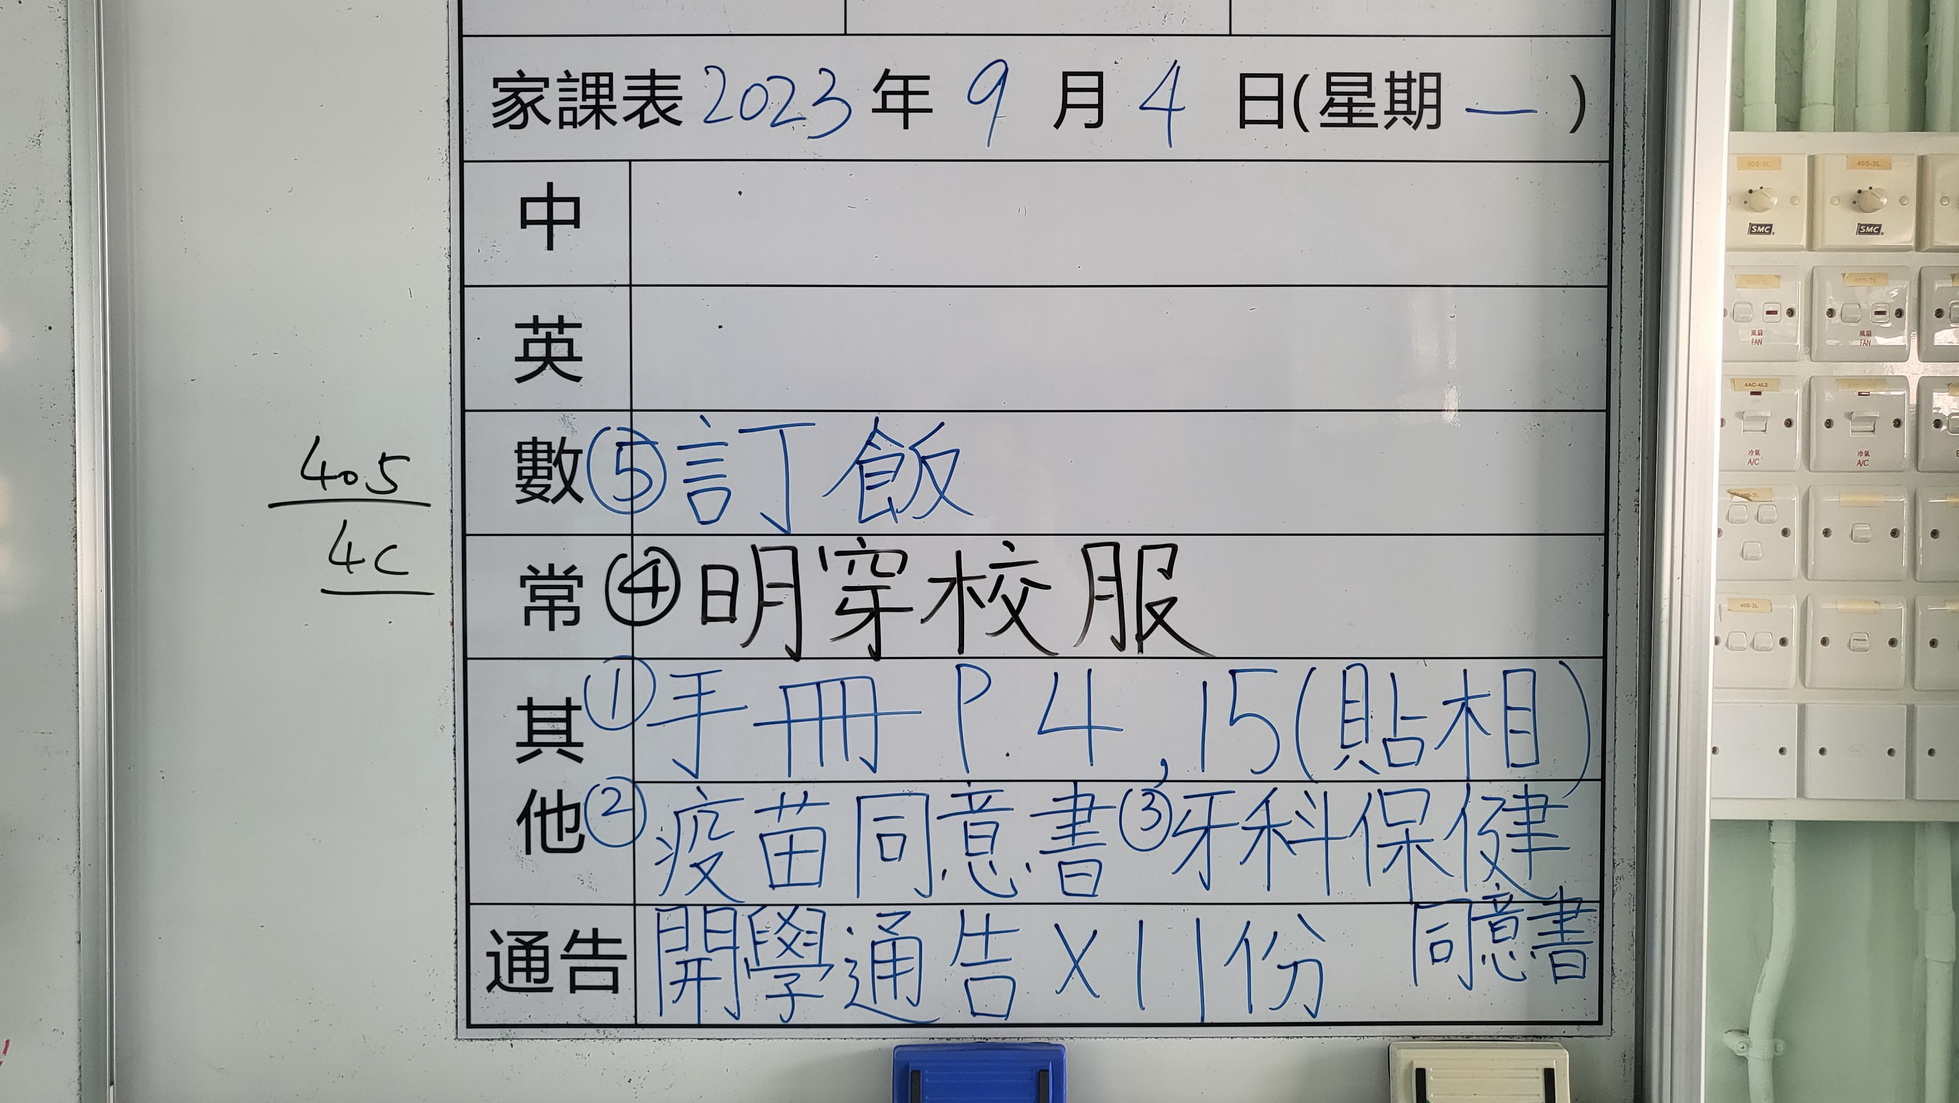 家課表 2023 年 9 月 4 日(星期一)
中
英
數 ⑤訂飯
常 ④明穿校服
其他 ①手冊 P.4,15(貼相)
②疫苗同意書③牙科保健
同意書
通告 開學通告X11份
405
4C
405-2L
405-3L
SMC
SMC
風扇
FAN
風扇
FAN
4AC-4L2
冷氣
A/C
冷氣
A/C